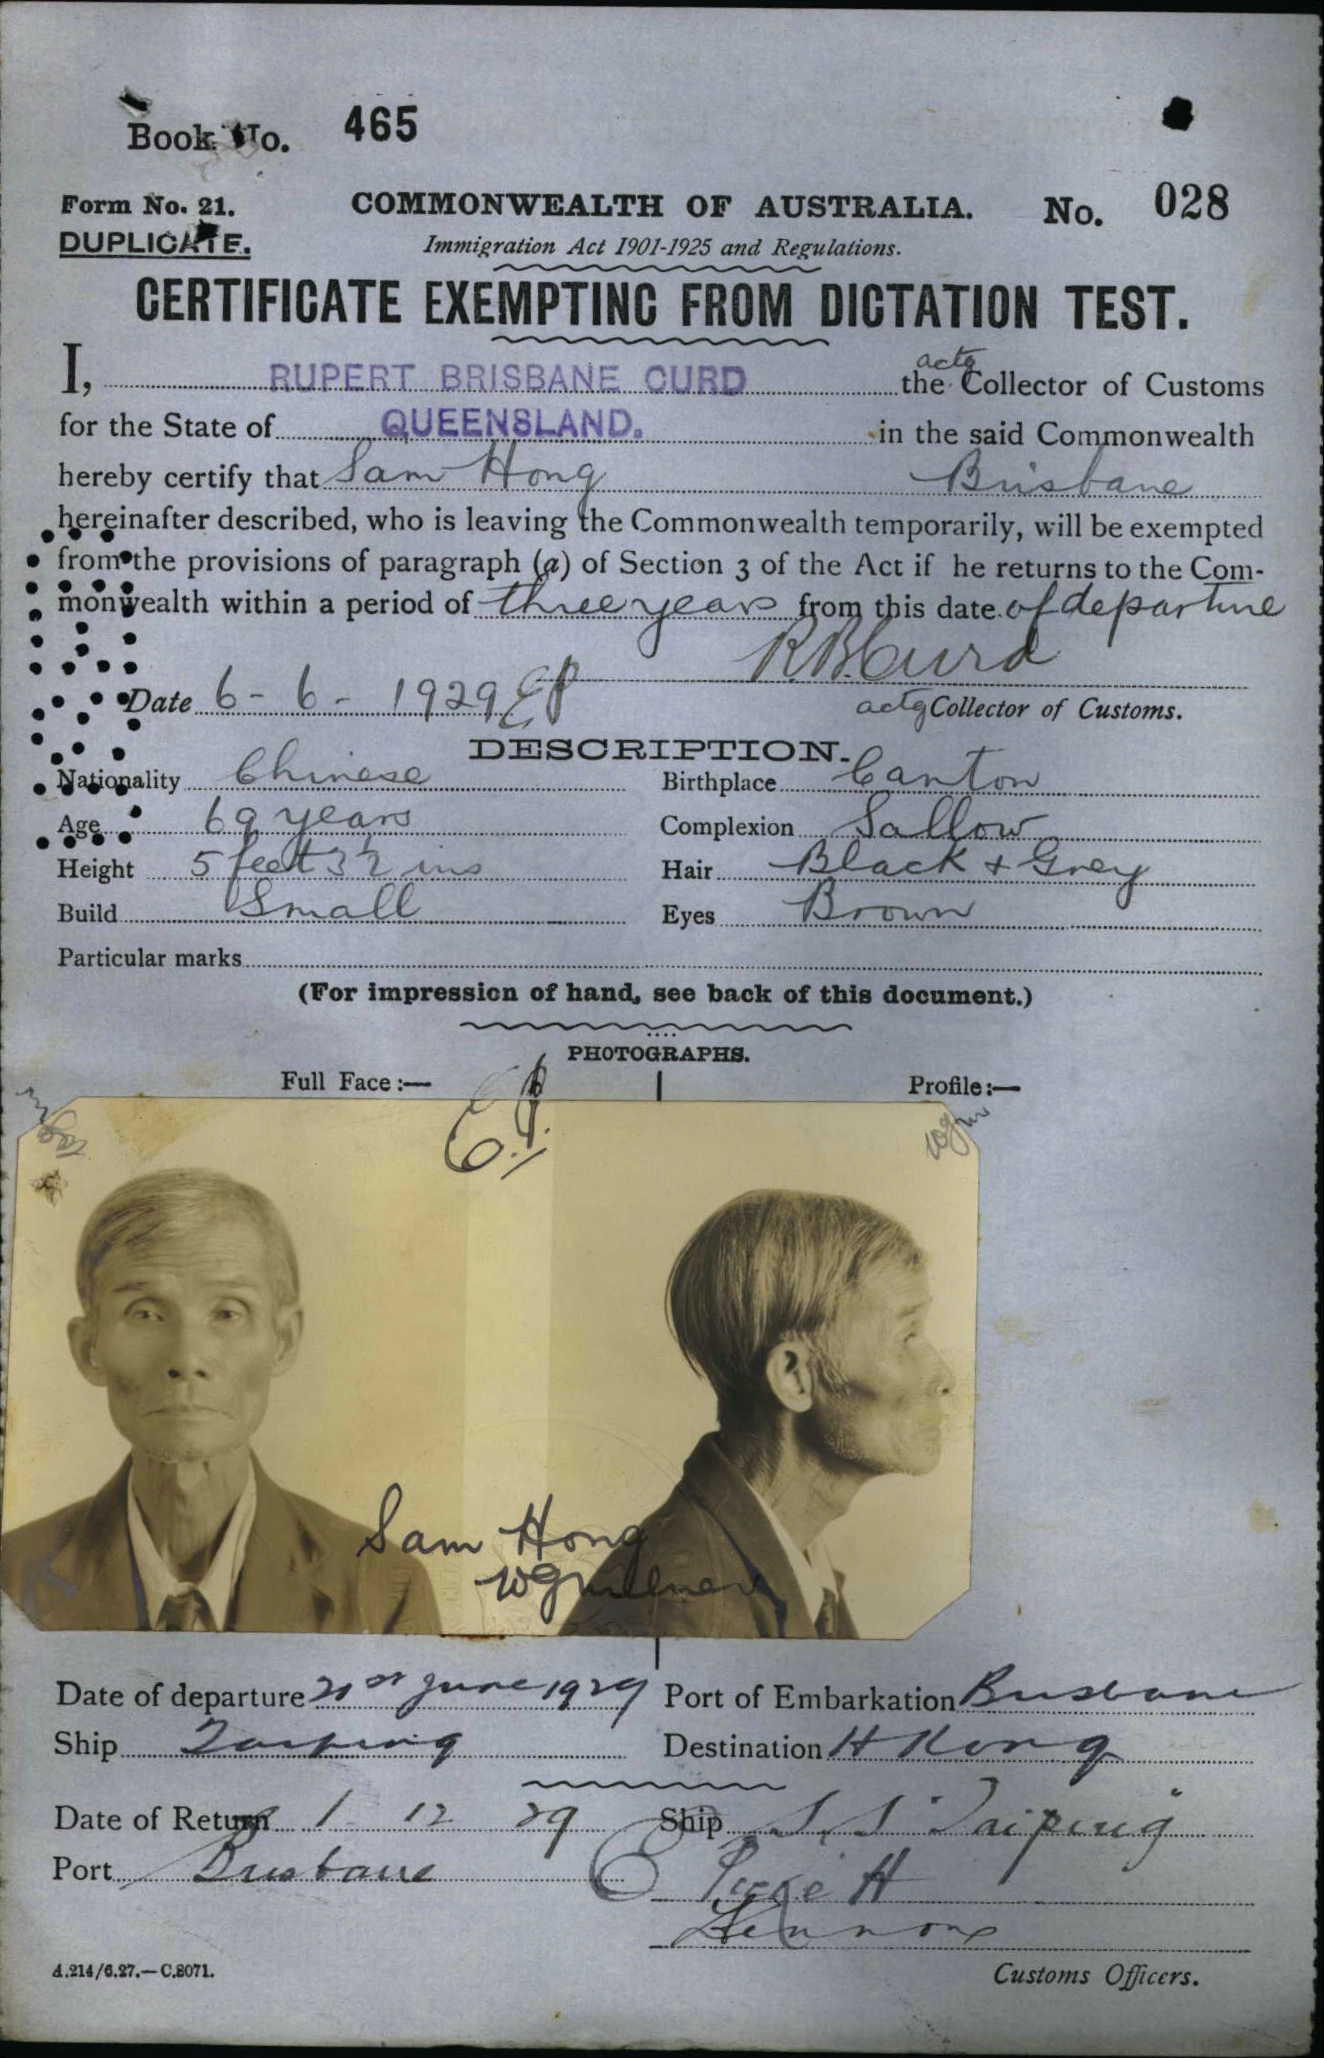 Book No. 465
Form No. 21. COMMONWEALTH OF AUSTRALIA. No. 028
DUPLICATE. Immigration Act 1901-1925 and Regulations.
CERTIFICATE EXEMPTING FROM DICTATION TEST.
I, RUPERT BRISBANE CURD the actg Collector of Customs
for the State of QUEENSLAND. in the said Commonwealth
hereby certify that Sam Hong Brisbane
hereinafter described, who is leaving the Commonwealth temporarily, will be exempted
from the provisions of paragraph (a) of Section 3 of the Act if he returns to the Com-
monwealth within a period of three years from this date of departure
R.B. Curd
Date 6-6-1929 actg Collector of Customs.
DESCRIPTION.
Nationality Chinese Birthplace Canton
Age 69 years Complexion Sallow
Height 5 feet 3½ ins Hair Black + Grey
Build Small Eyes Brown
Particular marks
(For impression of hand, see back of this document.)
PHOTOGRAPHS.
Full Face:— Profile:—
Sam Hong
Date of departure 21st June 1929 Port of Embarkation Brisbane
Ship Taiping Destination H Kong
Date of Return 1 12 29 Ship S.S "Taiping"
Port Brisbane
Lennox
A.214/6.27.—C.8071. Customs Officers.